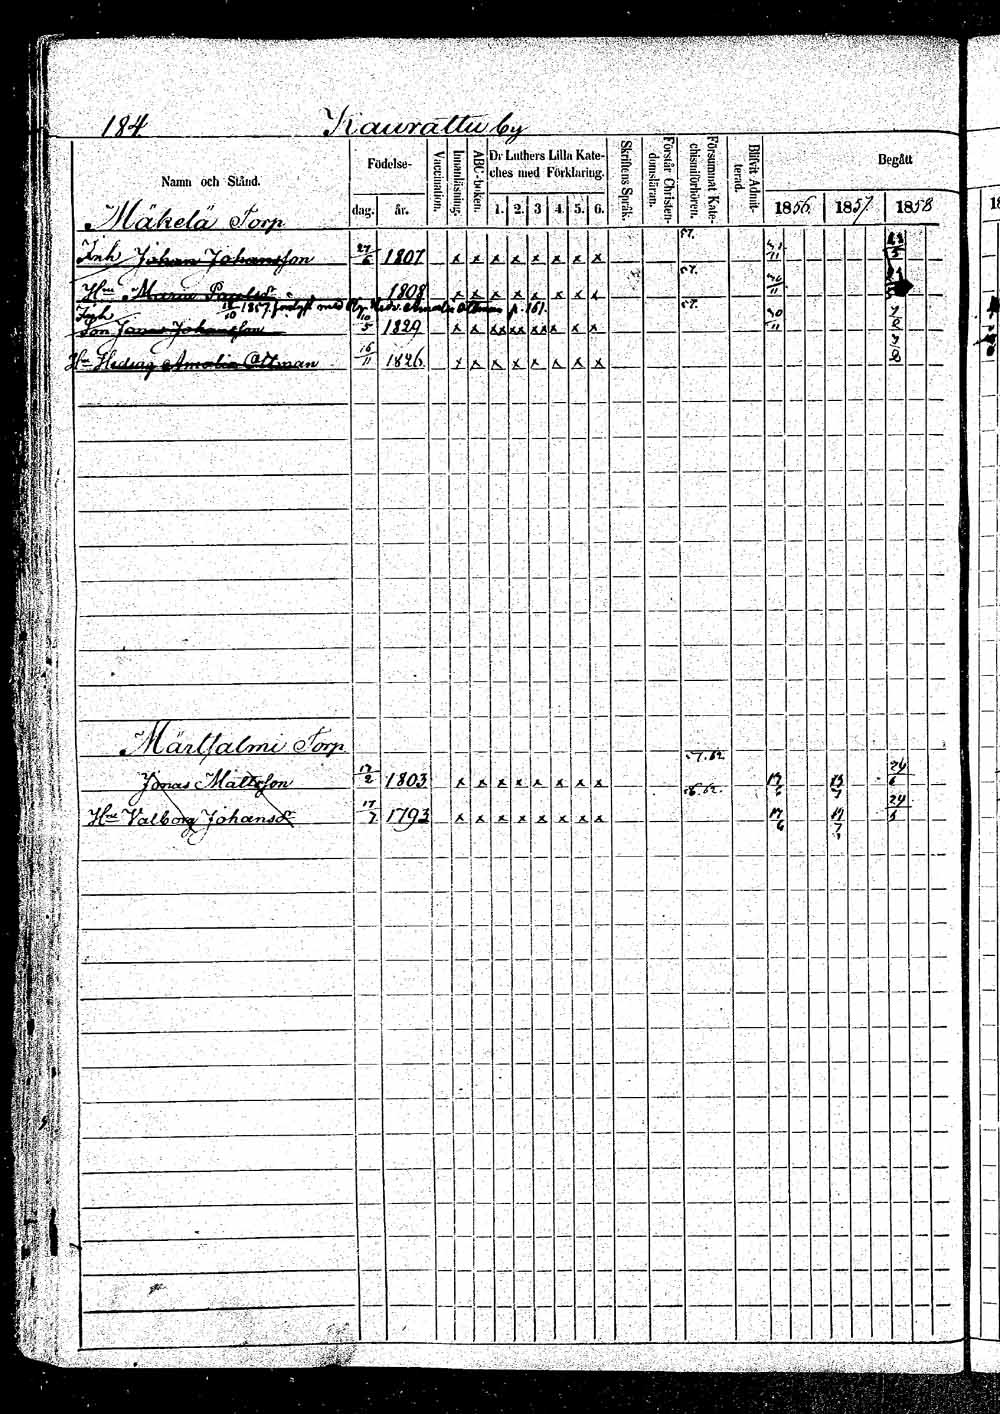 184 Kaurattu by
Namn och Stånd. Födelse- dag. år. Vaccination. Innanläsning. ABC-boken. Dr Luthers Lilla Kateches med Förklaring. 1. 2. 3 4. 5. 6. Skriftens Språk. Förstår Christendomsläran. Försummat Katechismiförhören. Blifvit Admitterad. Begått 1856. 1857. 1858
Mäkelä Torp
Inh Johan Johansson 27/6 1807 x x x x x x x x 57.
Hru Maria 1808 x x x x x x x x 57.
Inh 1857. med Hedv. Amalia Ottman p. 161. 57.
Son Jonas Johansson 10/5 1829 x x xx xx xxx x x x
Hru Hedvig Amalia Ottman 16/11 1826. x x x x x x x x
Märtsalmi Torp
Jonas Mattsson 17/2 1803 x x x x x x x x 57.62. 24/6
Hru Valborg Johansdr 17/7 1793 x x x x x x x x 56.62. 17/6 17/7 24/5